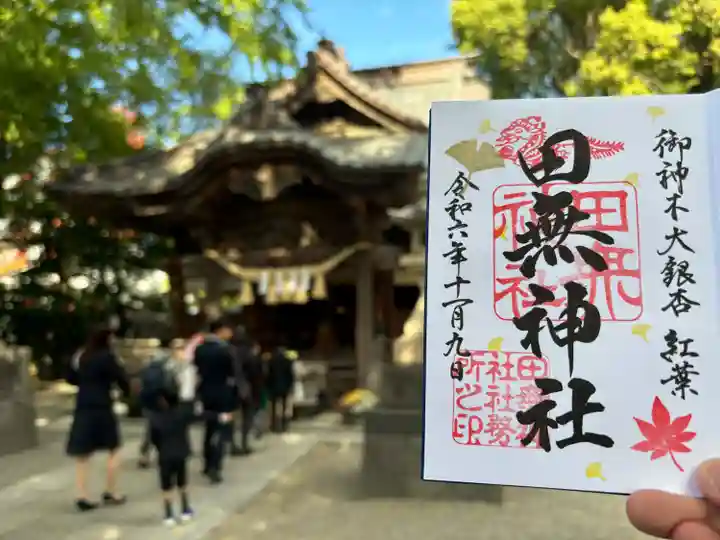 御神木大銀杏 紅葉
田無神社
令和六年十一月九日
田無
神社
田無神
社社務
所之印